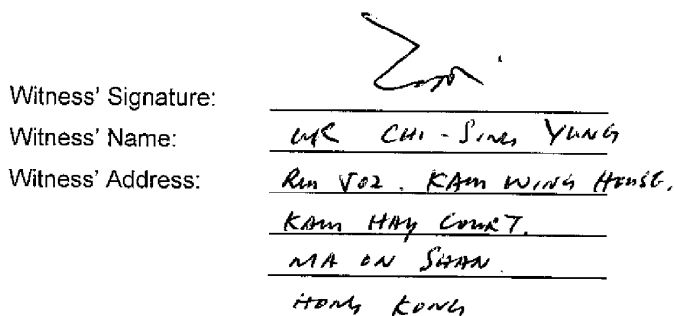 Witness' Signature:
Witness' Name: MR CHI-SING YUNG
Witness' Address: Rm 502. KAM WING HOUSE,
KAM HAY COURT.
MA ON SHAN.
HONG KONG